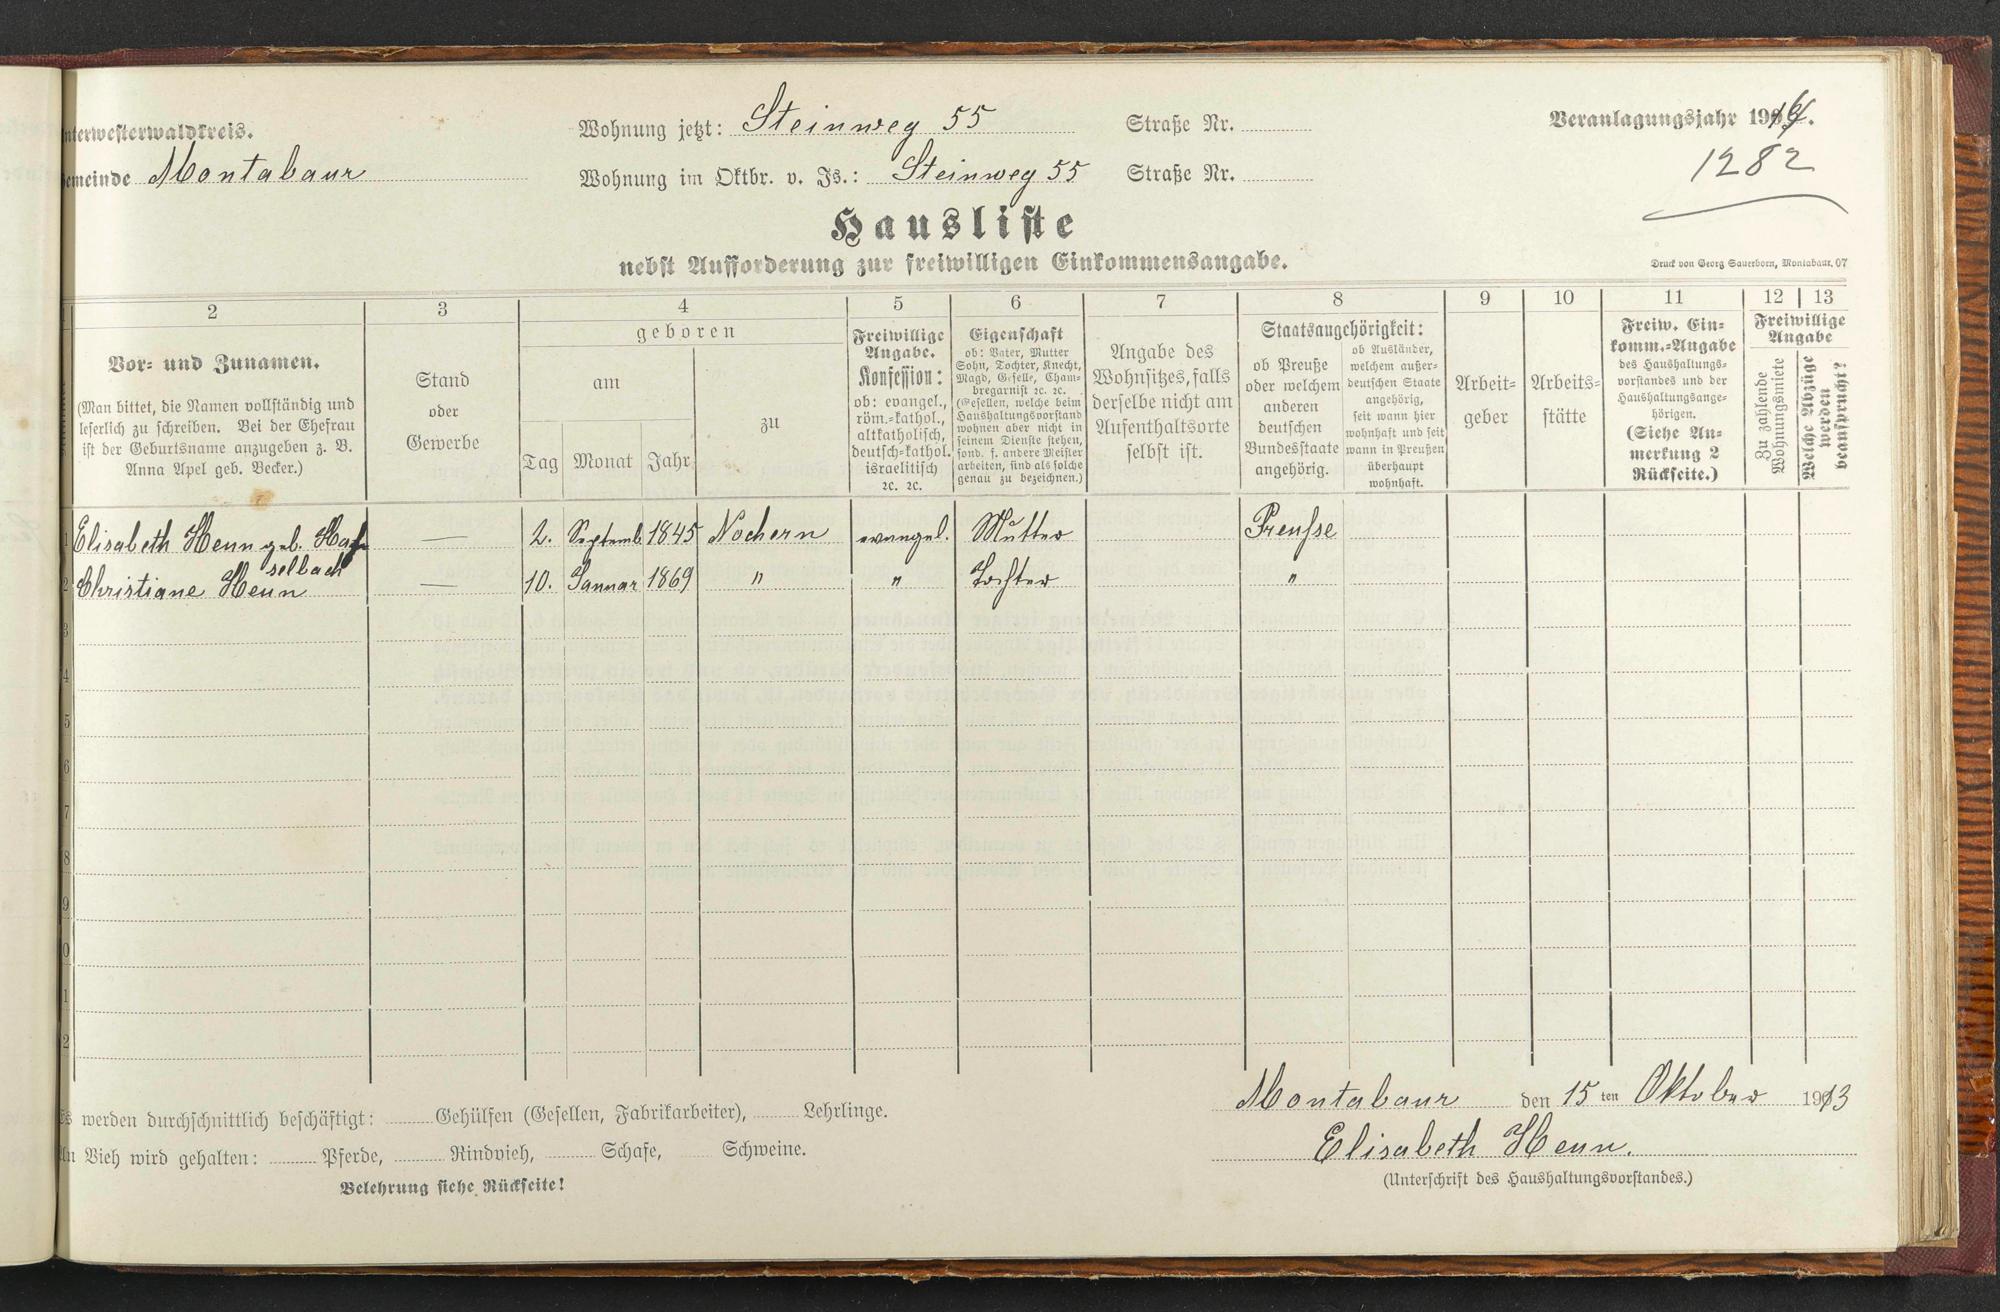 nterwesterwaldkreis.
Wohnung jetzt: Steinweg 55 Straße Nr.
Veranlagungsjahr 1914.
emeinde Montabaur
Wohnung im Oktbr. v. Js.: Steinweg 55 Straße Nr.
1282
Hausliste
nebst Aufforderung zur freiwilligen Einkommensangabe.
Druck von Georg Sauerborn, Montabaur. 07
2 3 4 5 6 7 8 9 10 11 12 13
Vor- und Zunamen.
(Man bittet, die Namen vollständig und
leserlich zu schreiben. Bei der Ehefrau
ist der Geburtsname anzugeben z. B.
Anna Apel geb. Becker.)
Stand
oder
Gewerbe
geboren
am
Tag Monat Jahr
zu
Freiwillige
Angabe.
Konfession:
ob: evangel.,
röm.-kathol.,
altkatholisch,
deutsch-kathol.
israelitisch
ꝛc. ꝛc.
Eigenschaft
ob: Vater, Mutter
Sohn, Tochter, Knecht,
Magd, Geselle, Cham-
bregarnist ꝛc. ꝛc.
(Gesellen, welche beim
Haushaltungsvorstand
wohnen aber nicht in
seinem Dienste stehen,
sond. f. andere Meister
arbeiten, sind als solche
genau zu bezeichnen.)
Angabe des
Wohnsitzes, falls
derselbe nicht am
Aufenthaltsorte
selbst ist.
Staatsangehörigkeit:
ob Preuße
oder welchem
anderen
deutschen
Bundesstaate
angehörig.
ob Ausländer,
welchem außer-
deutschen Staate
angehörig,
seit wann hier
wohnhaft und seit
wann in Preußen
überhaupt
wohnhaft.
Arbeit-
geber
Arbeits-
stätte
Freiw. Ein-
komm.-Angabe
des Haushaltungs-
vorstandes und der
Haushaltungsange-
hörigen.
(Siehe An-
merkung 2
Rückseite.)
Freiwillige
Angabe
Zu zahlende
Wohnungsmiete
Welche Abzüge
werden
beansprucht?
1 Elisabeth Henn geb. Has — 2. Septemb. 1845 Nochern evangel. Mutter Preusse
selbach
2 Christiane Henn — 10. Januar 1869 " " Tochter "
3
4
5
6
7
8
9
0
1
2
Montabaur den 15ten Oktober 1913
Es werden durchschnittlich beschäftigt: Gehülfen (Gesellen, Fabrikarbeiter), Lehrlinge.
Elisabeth Henn.
An Vieh wird gehalten: Pferde, Rindvieh, Schafe, Schweine.
(Unterschrift des Haushaltungsvorstandes.)
Belehrung siehe Rückseite!